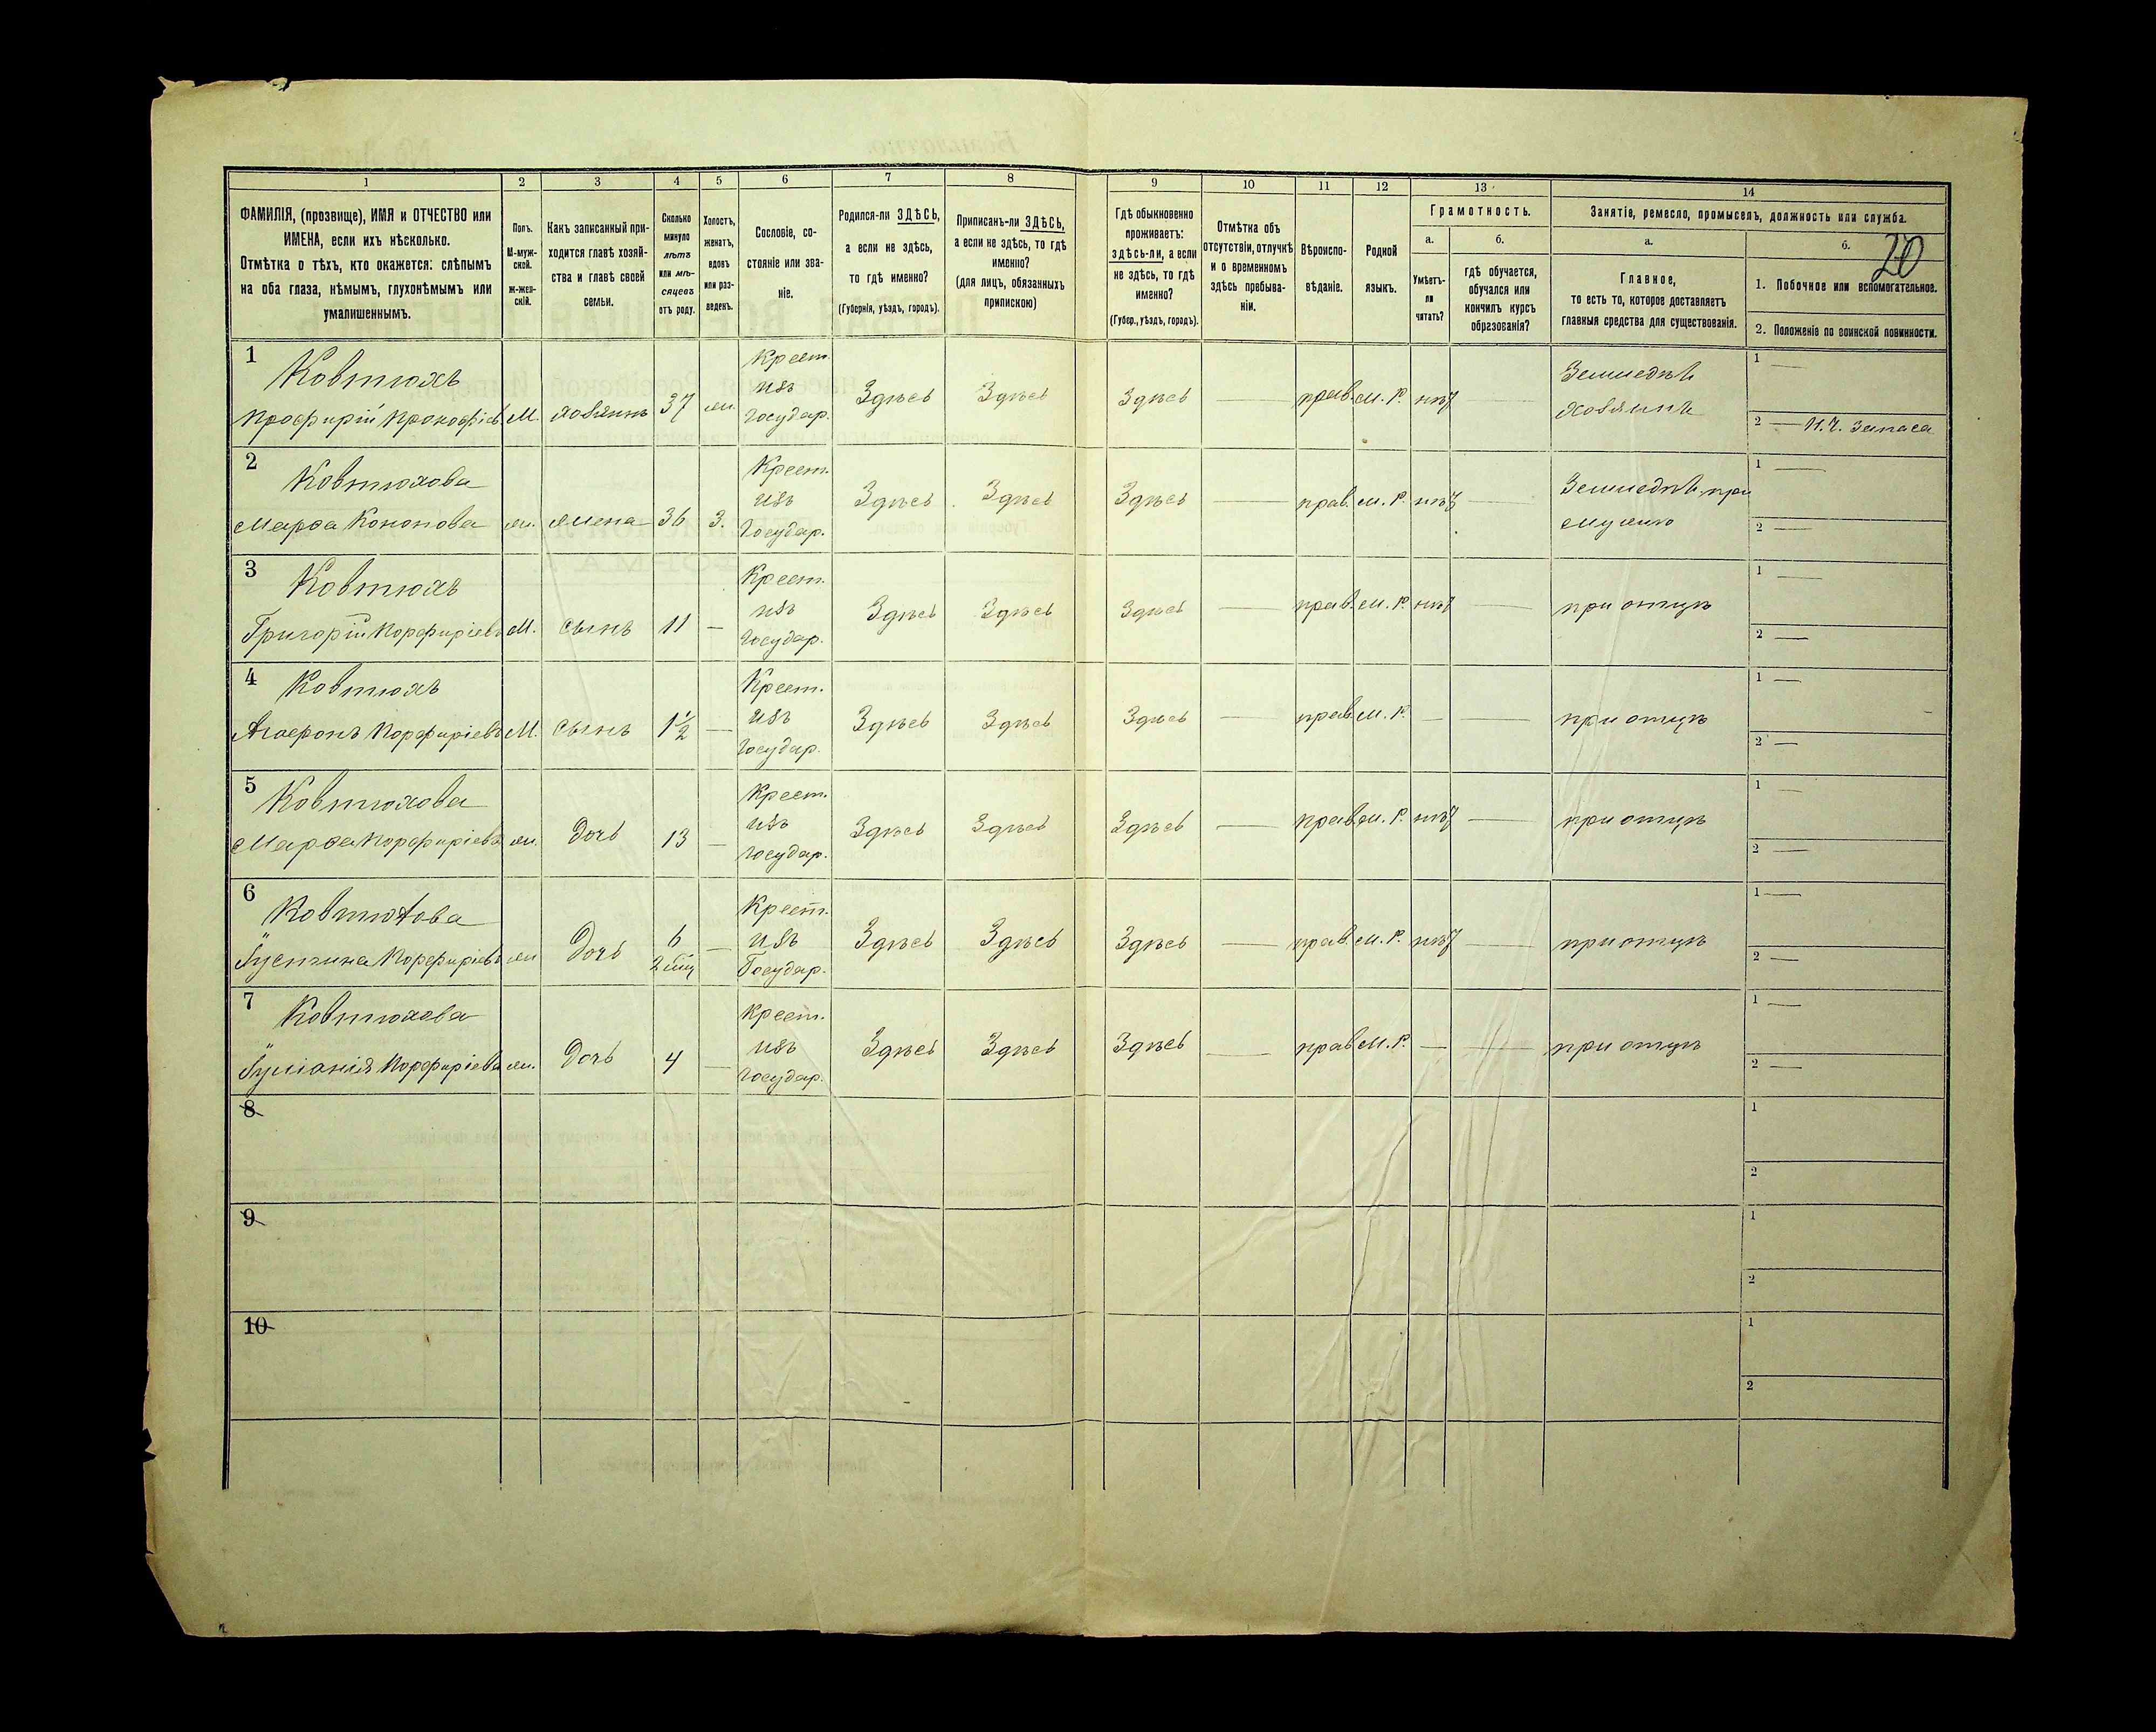 20
1 2 3 4 5 6 7 8 9 10 11 12 13 14
ФАМИЛІЯ, (прозвище), ИМЯ и ОТЧЕСТВО или
ИМЕНА, если ихъ нѣсколько.
Отмѣтка о тѣхъ, кто окажется: слѣпымъ
на оба глаза, нѣмымъ, глухонѣмымъ или
умалишеннымъ.
Полъ.
М-муж-
ской.
Ж-жен-
скій.
Какъ записанный при-
ходится главѣ хозяй-
ства и главѣ своей
семьи.
Сколько
минуло
лѣтъ
или мѣ-
сяцевъ
отъ роду.
Холостъ,
женатъ,
вдовъ
или раз-
веденъ.
Сословіе, со-
стояніе или зва-
ніе.
Родился-ли ЗДѢСЬ,
а если не здѣсь,
то гдѣ именно?
(Губернія, уѣздъ, городъ).
Приписанъ-ли ЗДѢСЬ,
а если не здѣсь, то гдѣ
именно?
(для лицъ, обязанныхъ
припискою)
Гдѣ обыкновенно
проживаетъ:
здѣсь-ли, а если
не здѣсь, то гдѣ
именно?
(Губер., уѣздъ, городъ).
Отмѣтка объ
отсутствіи, отлучкѣ
и о временномъ
здѣсь пребыва-
ніи.
Вѣроиспо-
вѣданіе.
Родной
языкъ.
Грамотность.
а.
Умѣетъ-
ли
читать?
б.
гдѣ обучается,
обучался или
кончилъ курсъ
образованія?
Занятіе, ремесло, промыселъ, должность или служба.
а.
Главное,
то есть то, которое доставляетъ
главныя средства для существованія.
б.
1. Побочное или вспомогательное.
2. Положеніе по воинской повинности.
1 Ковтюхъ Крест. Земледѣл. 1 —
Профирій Прокофіев М. хозяинъ 37 ж. изъ Здѣсь Здѣсь Здѣсь — прав. м. р. нѣт — хозяинъ
Государ. 2 — И. Ч. запаса
2 Ковтюхова Крест. Земледѣл. при 1 —
Марѳа Кононова ж. жена 36 З. изъ Здѣсь Здѣсь Здѣсь — прав. м. р. нѣт — мужѣ
Государ. 2 —
3 Ковтюхъ Крест. 1 —
Григорій Порфиріевъ М. сынъ 11 — изъ Здѣсь Здѣсь Здѣсь — прав. м. р. нѣт — при отцѣ
Государ. 2 —
4 Ковтюхъ Крест. 1 —
Порфиріевъ М. сынъ 1½ — изъ Здѣсь Здѣсь Здѣсь — прав. м. р. — — при отцѣ
Государ. 2 —
5 Ковтюхова Крест. 1 —
Марѳа Порфиріев ж. дочь 13 — изъ Здѣсь Здѣсь Здѣсь — прав. м. р. нѣт — при отцѣ
Государ. 2 —
6 Ковтюхова Крест. 1 —
Порфиріев ж дочь 6 — изъ Здѣсь Здѣсь Здѣсь — прав. м. р. нѣт — при отцѣ
Государ. 2 —
7 Ковтюхова Крест. 1 —
Порфиріева ж. дочь 4 — изъ Здѣсь Здѣсь Здѣсь — прав. м. р. — — при отцѣ
Государ. 2 —
8 1
2
9 1
2
10 1
2